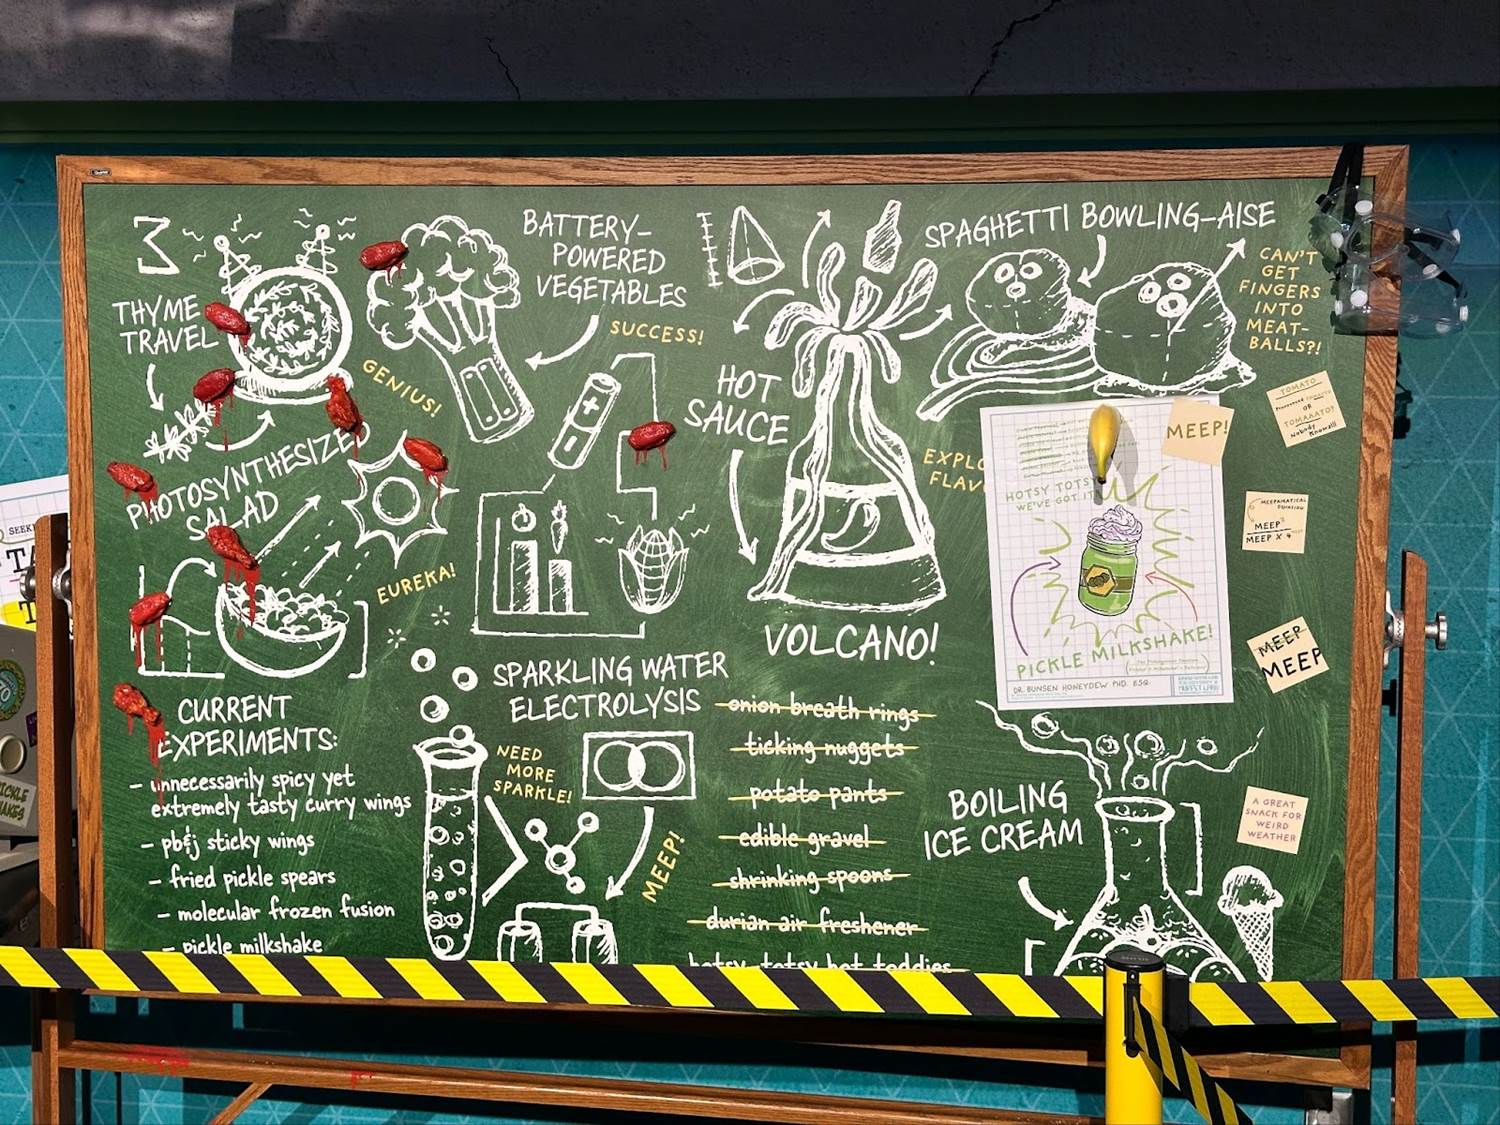 3
THYME
TRAVEL
GENIUS!
BATTERY-
POWERED
VEGETABLES
SUCCESS!
HOT
SAUCE
VOLCANO!
SPAGHETTI BOWLING-AISE
CAN'T
GET
FINGERS
INTO
MEAT-
BALLS?!
PHOTOSYNTHESIZED
SALAD
EUREKA!
HOTSY TOTSY
WE'VE GOT IT
PICKLE MILKSHAKE!
DR. BUNSEN HONEYDEW PHD. ESQ.
MEEP!
TOMATO
OR
TOMAAATO?
Nobody
Knows!!
MEEPAMATICAL
EQUATION
MEEP
MEEP X 4
MEEP
MEEP
A GREAT
SNACK FOR
WEIRD
WEATHER
CURRENT
EXPERIMENTS:
- unnecessarily spicy yet
extremely tasty curry wings
- pb&j sticky wings
- fried pickle spears
- molecular frozen fusion
- pickle milkshake
SPARKLING WATER
ELECTROLYSIS
NEED
MORE
SPARKLE!
MEEP!
onion breath rings
ticking nuggets
potato pants
edible gravel
shrinking spoons
durian air freshener
hotsy-totsy hot toddies
BOILING
ICE CREAM